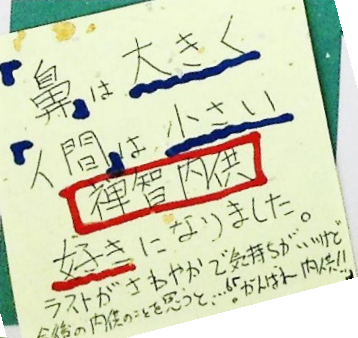 『鼻』は大きく
『人間』は小さい
禅智内供
好きになりました。
ラストがさわやかで気持ちがいいけど
今後の内供のことを思うと…。"がんばれ 内供!!"